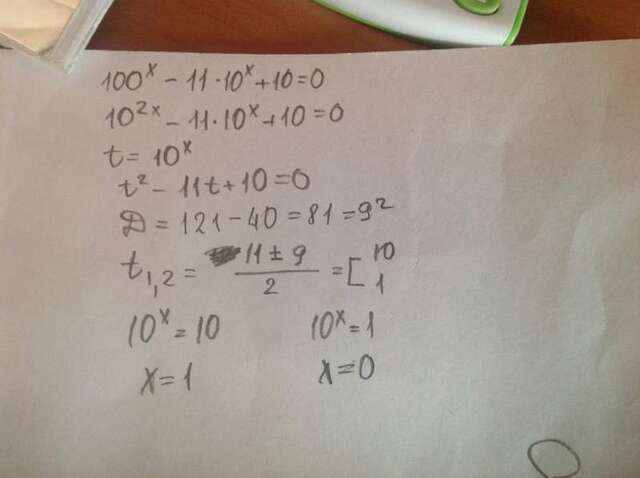 100ˣ - 11·10ˣ + 10 = 0
10²ˣ - 11·10ˣ + 10 = 0
t = 10ˣ
t² - 11t + 10 = 0
Д = 121 - 40 = 81 = 9²
t₁,₂ = (11 ± 9)/2 = [10 1
10ˣ = 10 10ˣ = 1
x = 1 x = 0